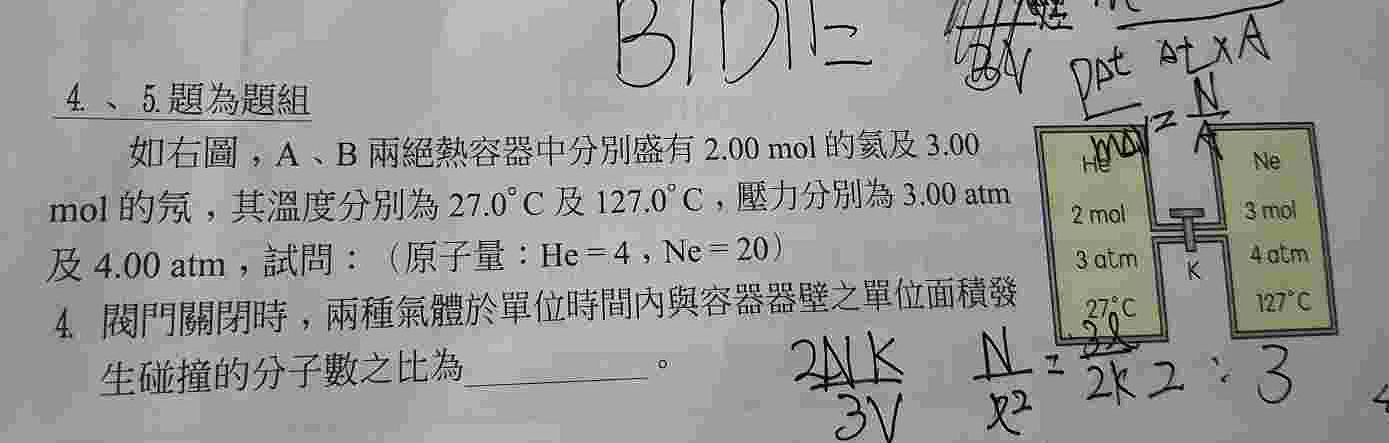 B/D11=
BV
Δt×A
PΔt
N
A
4、5.題為題組
如右圖，A、B 兩絕熱容器中分別盛有 2.00 mol 的氦及 3.00
mol 的氖，其溫度分別為 27.0°C 及 127.0°C，壓力分別為 3.00 atm
及 4.00 atm，試問：（原子量：He = 4，Ne = 20）
4. 閥門關閉時，兩種氣體於單位時間內與容器器壁之單位面積發
生碰撞的分子數之比為______。
He
2 mol
3 atm
27°C
K
Ne
3 mol
4 atm
127°C
2NK
3V
N
=
2k
2 : 3